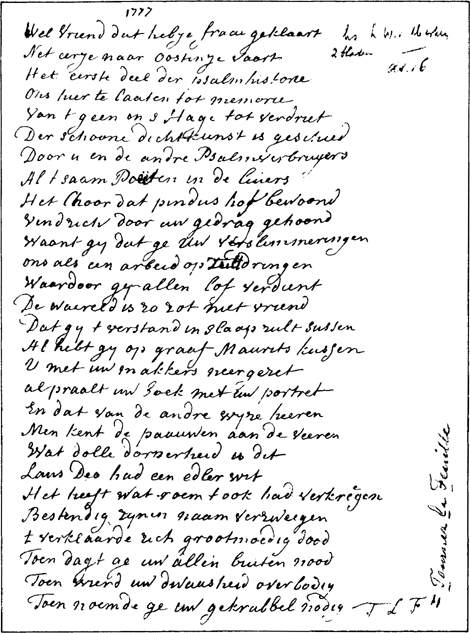 1777
Wel Vriend dat hebje fraai geklaart
Net eerje naar Oostinje vaart
Het eerste deel der psalmhistorie
Ons hier te laaten tot memorie
Van t geen ons Hage tot verdriet
Der schoone dichtkunst is geschied
Door u en de andre Psalmverbruyers
Al t saam Poëten in de luiers
Het Choor dat pindus hof bewoond
Vind zich door uw gedrag gehoond
Waant gy dat ge uw verslimmeringen
ons als een arbeid op zult dringen
Waardoor gy allen lof verdient
De waereld is zo zot niet vriend
Dat gy t verstand in slaap zult sussen
Al hebt gy op graaf Maurits kussen
U met uw makkers neergezet
al praalt uw boek met uw portret
En dat van de andre wyze heeren
Men kent de paauwen aan de veeren
Wat dolle dorperheid is dit
Laus Deo had een edler wit
Het heeft wat roem t ook had verkrégen
Bestendig zynen naam verzweegen
t verklaarde zich grootmoedig dood
Toen dagt ge uw allen buiten nood
Toen wierd uw dwaasheid overbodig
Toen noemde ge uw gekrabbel nodig T L F
Tournier La Feuille